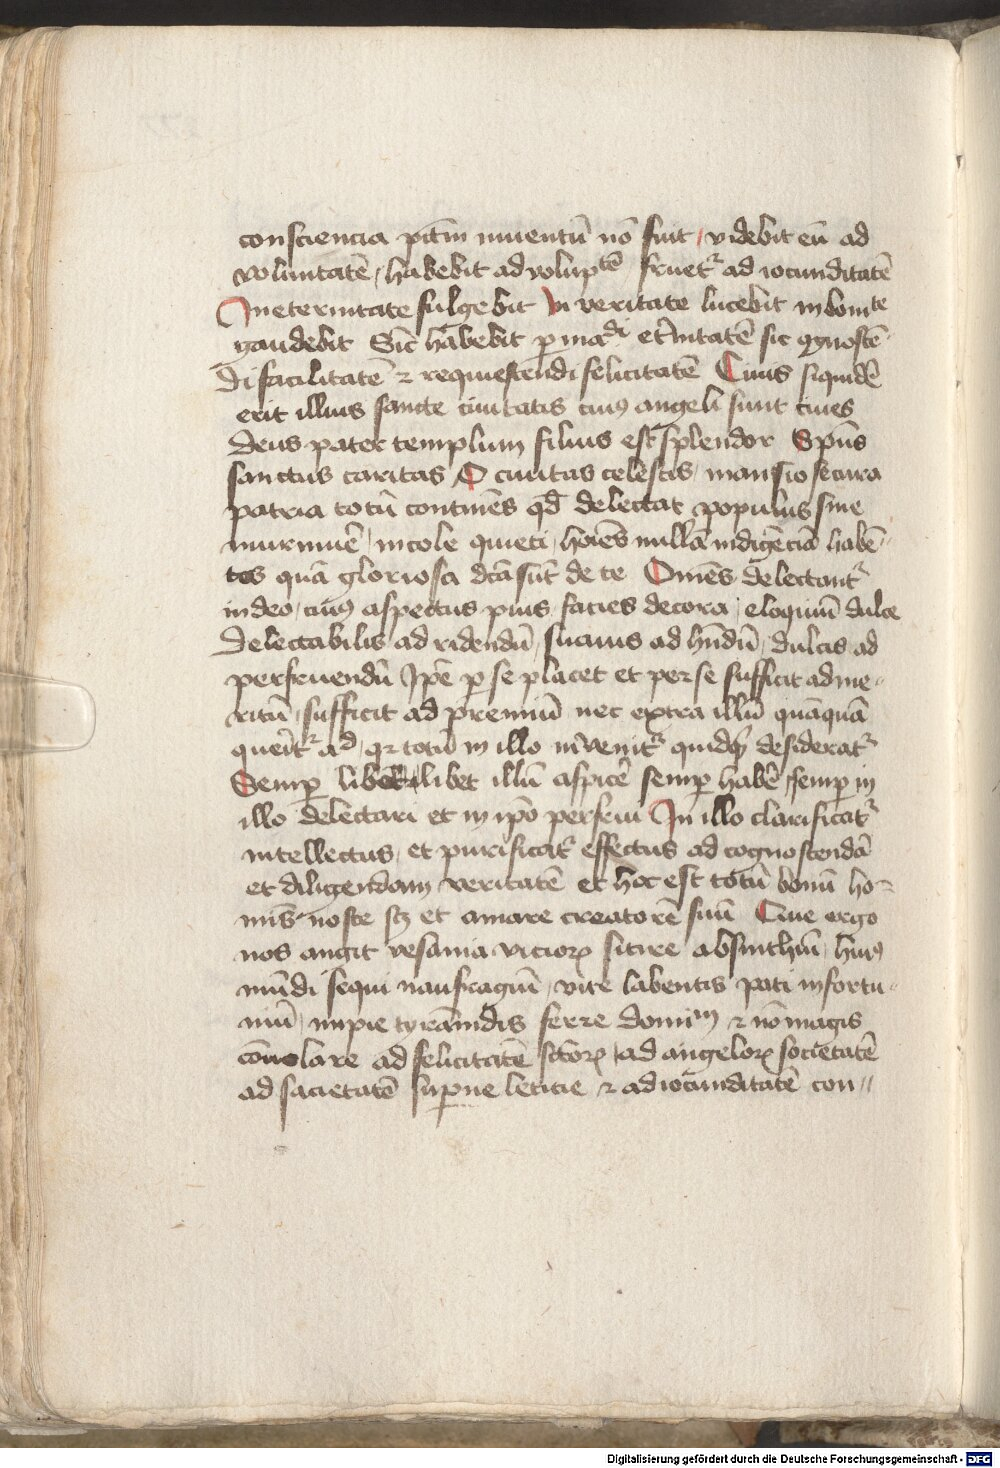 consciencia pctm̄ inuentū nō fuit / videbit eū ad
voluntatē / habebit ad voluptē fruet᷑ ad iocunditatē
In eternitate fulgebit In veritate lucebit in bonite
gaudebit Sic habebit p et̄nitatē sic 9gnoscē-
di facilitatē ⁊ requiescendi felicitatē Ciuis siquidē
erit illius sancte ciuitatis cui9 angeli sunt ciues
deus pater templum filius est splendor Spūs
sanctus caritas O ciuitas celestis / mansio secura
patria totū continēs qd̄ delectat populus sine
murmurē / incole quieti / hoīes nullā indigēciā habē-
tes quā gloriosa dcā sūt de te Omēs delectant᷑
in deo / cui9 aspectus pius / facies decora / eloquiū dulce
delectabilis ad videndū / suauis ad hn̄dū / dulcis ad
perfruendū Ip̄e p se placet et per se sufficit ad me-
ritū / sufficit ad premiū nec extra illū quāquā
querit᷑ ad qr totū in illo inuenit᷑ quidq desiderat᷑
Semp libet illū aspicē semp habē / semp in
illo delectari et in ip̄o perfrui In illo clarificat᷑
intellectus / et purificat᷑ effectus ad cognoscendā
et diligendam veritatē et hoc est totū bonū ho-
mīs noscē sꝫ et amare creatorē suū Que ergo
nos angit vesania vicioꝝ sitire absinthiū / hui9
mūdi sequi naufragiū / vite labentis pati infortu-
niū / impie tyrānidis ferre domīm ⁊ nō magis
cōuolare ad felicitatē sctōꝝ / ad angeloꝝ societatē
ad sacietatē sup̄ne leticie ⁊ ad iocunditatē con-
Digitalisierung gefördert durch die Deutsche Forschungsgemeinschaft - DFG